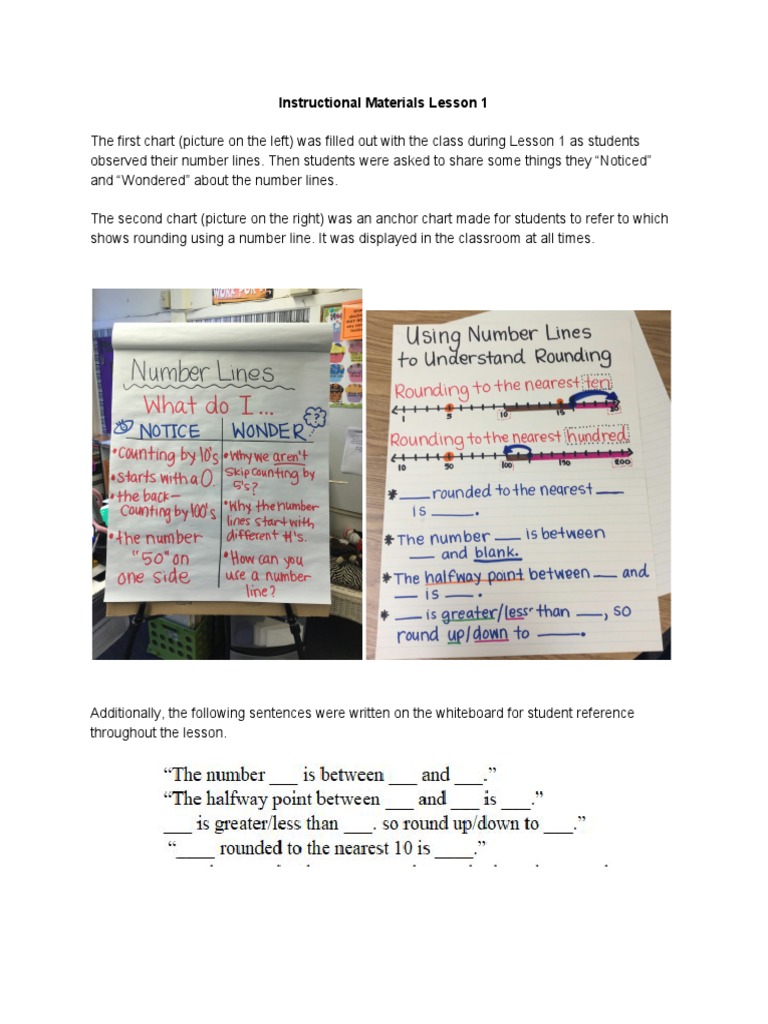 Instructional Materials Lesson 1
The first chart (picture on the left) was filled out with the class during Lesson 1 as students
observed their number lines. Then students were asked to share some things they “Noticed”
and “Wondered” about the number lines.
The second chart (picture on the right) was an anchor chart made for students to refer to which
shows rounding using a number line. It was displayed in the classroom at all times.
Number Lines
What do I...
NOTICE
• Counting by 10's
• starts with a 0.
• the back-
counting by 100's
• the number
"50" on
one side
WONDER
• Why we aren't
skip counting by
5's?
• Why the number
lines start with
different #'s.
• How can you
use a number
line?
Using Number Lines
to Understand Rounding
Rounding to the nearest ten
1 5 10 15 20
Rounding to the nearest hundred
10 50 100 150 200
* ___ rounded to the nearest ___
is ____.
* The number ___ is between
___ and blank.
* The halfway point between ___ and
___ is ___.
* ___ is greater/less than ___, so
round up/down to ____.
Additionally, the following sentences were written on the whiteboard for student reference
throughout the lesson.
“The number ___ is between ___ and ___.”
“The halfway point between ___ and ___ is ___.”
___ is greater/less than ___. so round up/down to ___.”
“____ rounded to the nearest 10 is ____.”